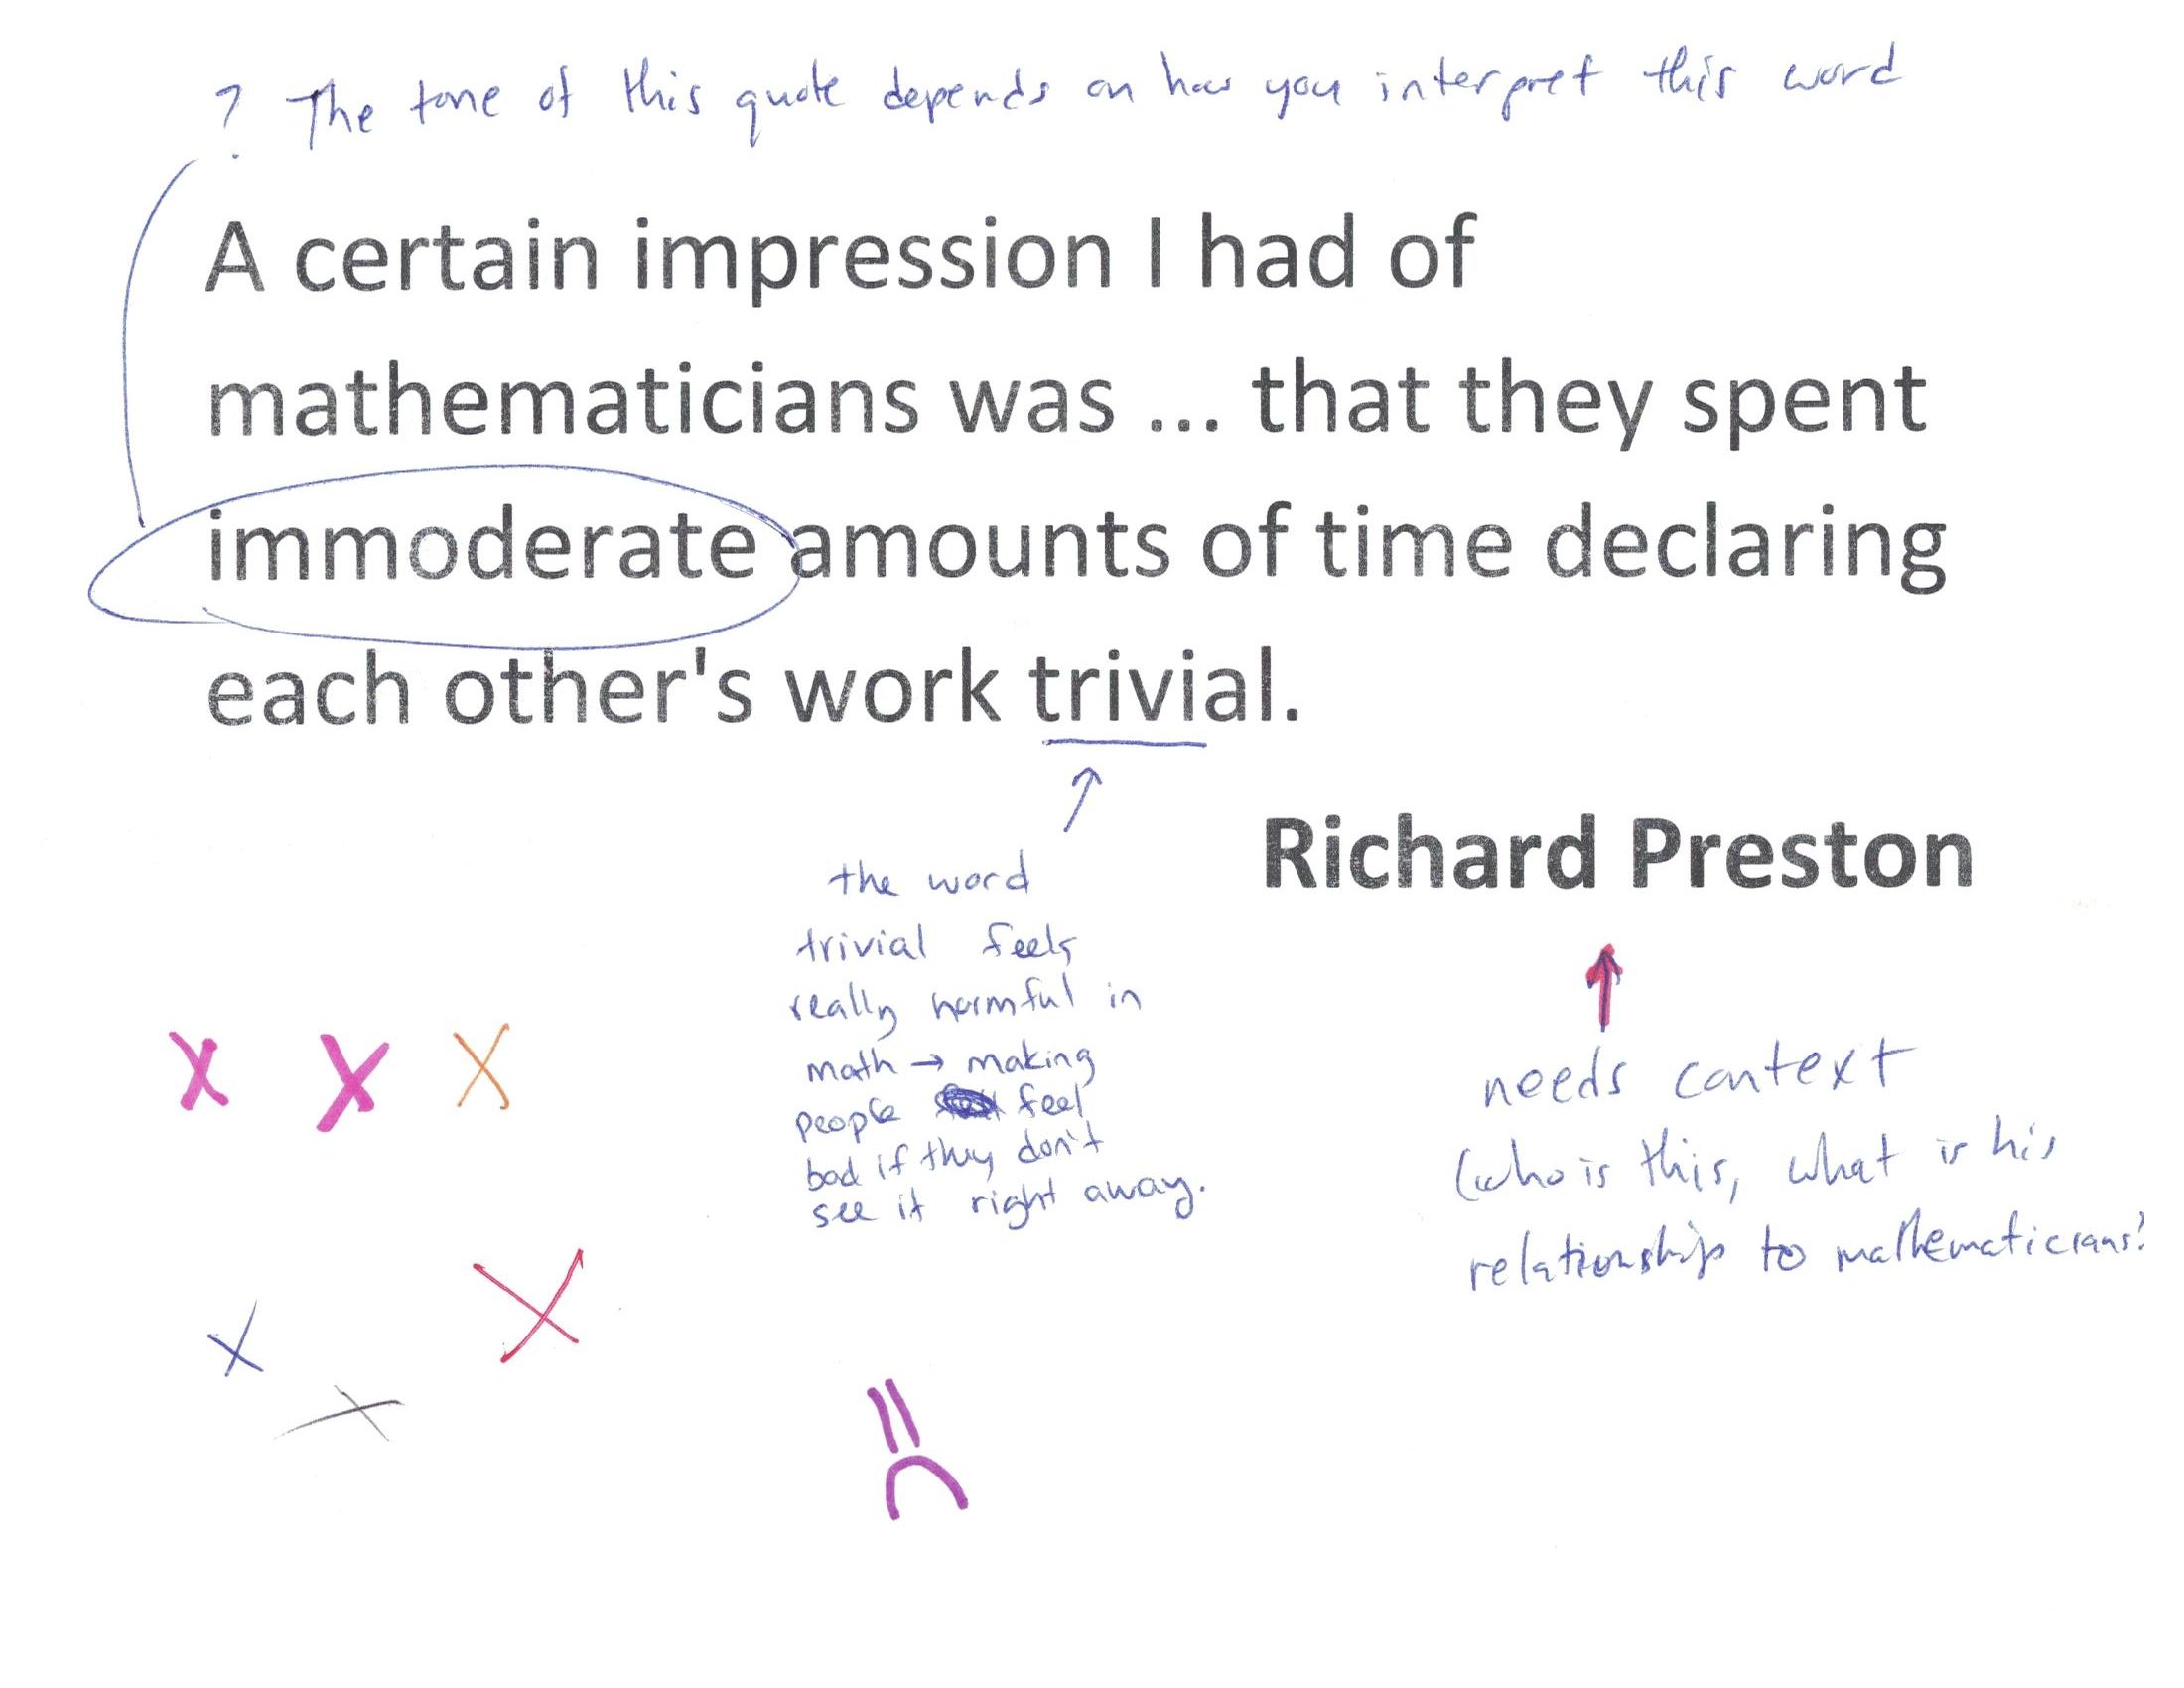 ? The tone of this quote depends on how you interpret this word
A certain impression I had of
mathematicians was ... that they spent
immoderate amounts of time declaring
each other's work trivial.
Richard Preston
the word
trivial feels
really harmful in
math → making
people feel
bad if they don't
see it right away.
needs context
(who is this, what is his
relationship to mathematicians?
X X X
X
X
X